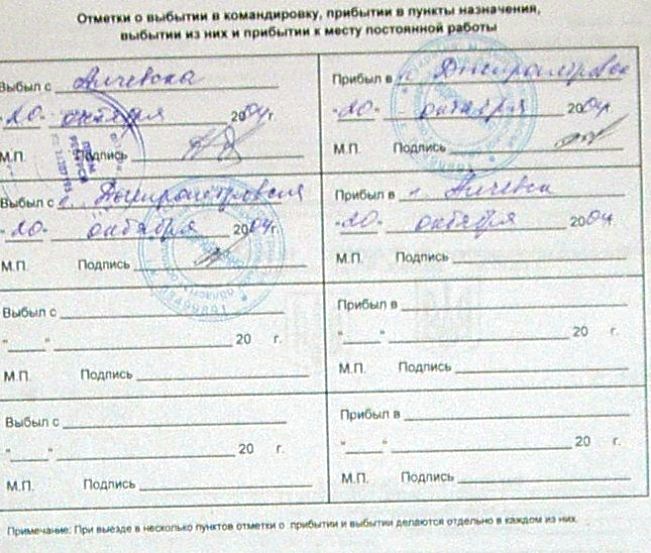 Отметки о выбытии в командировку, прибытии в пункты назначения,
выбытии из них и прибытии к месту постоянной работы
Выбыл с Алчевска
"20" октября 2004г.
М.П. Подпись
Прибыл в г. Днепропетровск
"20" октября 2004г.
М.П. Подпись
Выбыл с г. Днепропетровска
"20" октября 2004г.
М.П. Подпись
Прибыл в г. Алчевск
"20" октября 2004г.
М.П. Подпись
Выбыл с
" " 20 г.
М.П. Подпись
Прибыл в
" " 20 г.
М.П. Подпись
Выбыл с
" " 20 г.
М.П. Подпись
Прибыл в
" " 20 г.
М.П. Подпись
Примечание: При выезде в несколько пунктов отметки о прибытии и выбытии делаются отдельно в каждом из них.